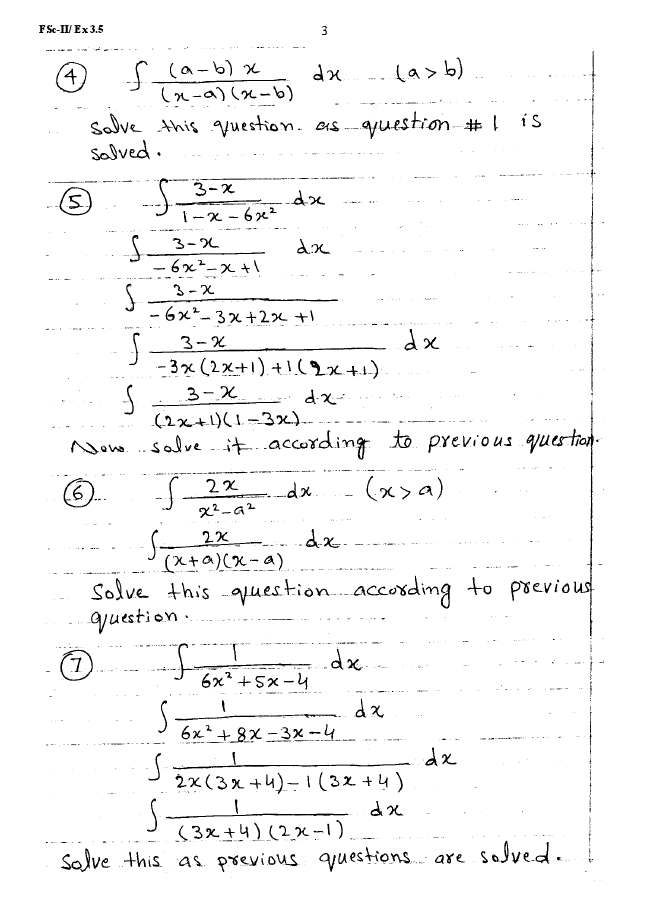 FSc-II/ Ex 3.5
3
④ ∫ (a-b) x / (x-a)(x-b) dx (a > b)
Solve this question as question # 1 is
solved.
⑤ ∫ 3-x / 1-x-6x² dx
∫ 3-x / -6x²-x+1 dx
∫ 3-x / -6x²-3x+2x+1
∫ 3-x / -3x(2x+1)+1(2x+1) dx
∫ 3-x / (2x+1)(1-3x) dx
Now solve it according to previous question.
⑥ ∫ 2x / x²-a² dx (x > a)
∫ 2x / (x+a)(x-a) dx
Solve this question according to previous
question.
⑦ ∫ 1 / 6x²+5x-4 dx
∫ 1 / 6x²+8x-3x-4 dx
∫ 1 / 2x(3x+4)-1(3x+4) dx
∫ 1 / (3x+4)(2x-1) dx
Solve this as previous questions are solved.